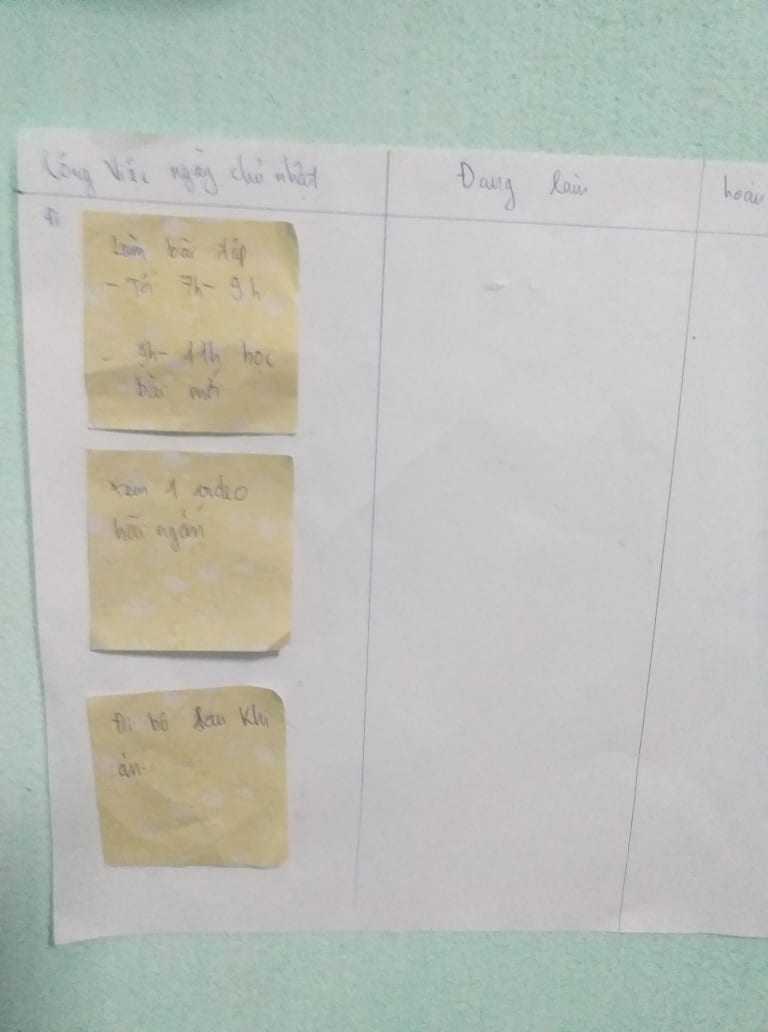 Công việc ngày chủ nhật
Đang làm
hoàn
Đi
Làm bài tập
- Tối 7h- 9h
- 9h- 11h học
bài mới
xem 1 video
hài ngắn
Đi bộ sau khi
ăn